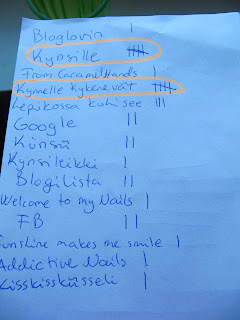 Bloglovin |
Kynsille ||||
From CaramelHands |
Kymmelle kykenevät ||||
Lepikossa kuhisee |||
Google ||
Könsü ||
Kynsileikki |
Blogilista ||
Welcome to my Nails |
FB ||
Sunshine makes me smile |
Addictive Nails |
Kisskisskiisseli |